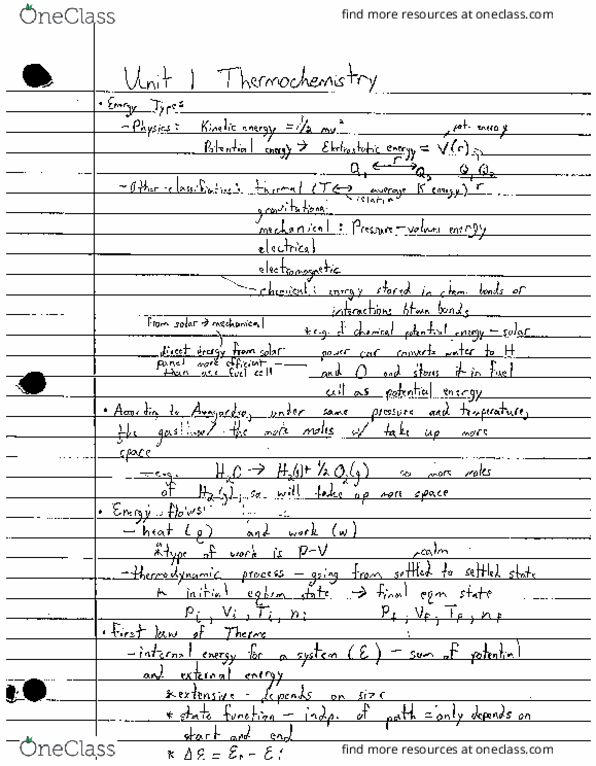 OneClass
find more resources at oneclass.com
Unit 1 Thermochemistry
• Energy Types
- Physics: Kinetic energy = 1/2 mv²
pot. energy
Potential energy → Electrostatic energy = V(r)
Q₁ ←r→ Q₂ Q₁Q₂
r
- Other classifications: thermal (T ↔ average K energy)
relation
gravitational
mechanical: Pressure-volume energy
electrical
electromagnetic
- chemical: energy stored in chem. bonds or
interactions btwn bonds
from solar → mechanical
* e.g. of chemical potential energy - solar
direct energy from solar
power car converts water to H
panel more efficient
than use fuel cell
and O and stores it in fuel
cell as potential energy
• According to Avogadro, under same pressure and temperature,
the gas w/ the more moles w/ take up more
space
- e.g. H₂O → H₂(g) + 1/2 O₂(g) so more moles
of H₂(g), so will take up more space
• Energy flows:
- heat (q) and work (w)
* type of work is P-V
calm
- thermodynamic process - going from settled to settled state
initial eqbm state → final eqm state
Pi, Vi, Ti, ni Pf, Vf, Tf, nf
• First law of Thermo
- internal energy for a system (E) - sum of potential
and external energy
* extensive - depends on size
* state function - indp. of path = only depends on
start and end
* ΔE = Ef - Ei
OneClass
find more resources at oneclass.com